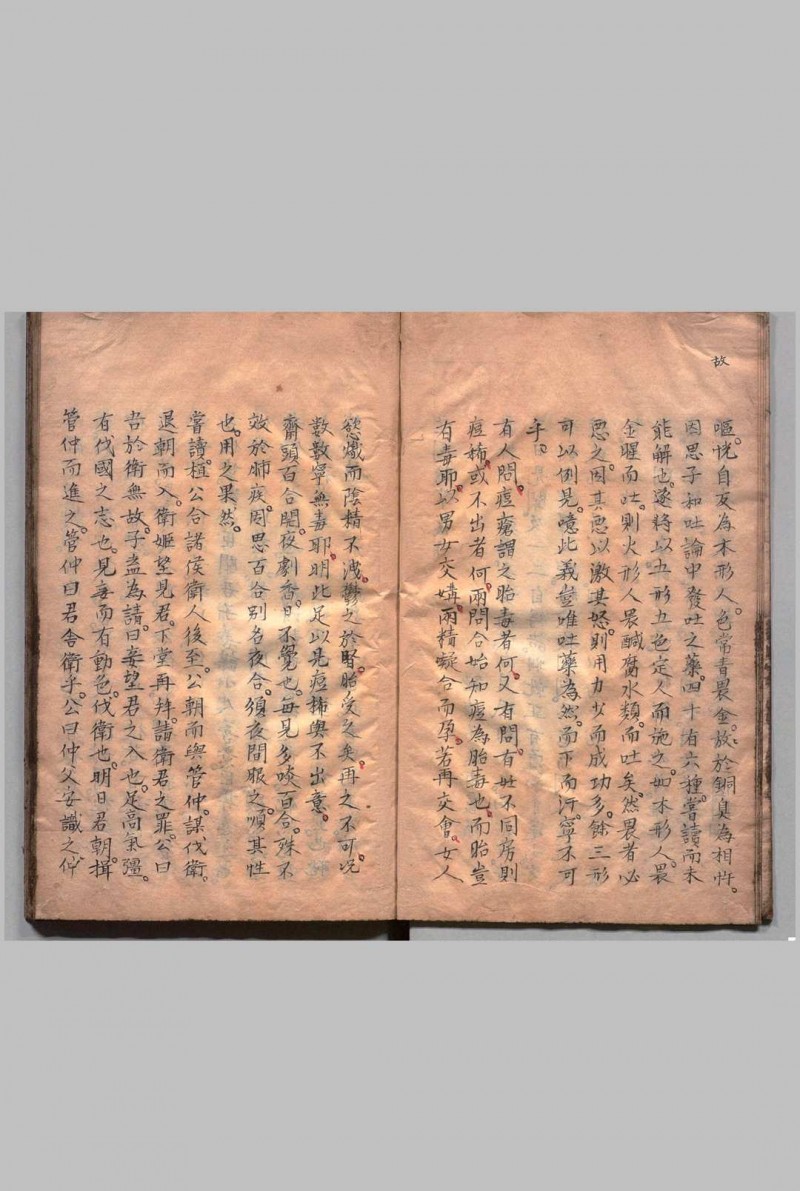 故
嘔。恍自反為木形人。色常青畏金。故於銅臭為相忤。
因思子和吐論中發吐之藥。四十有六種。嘗讀而未
能解也。遂將以五形五色定人而施之。如木形人。畏
金腥而吐。則火形人畏鹹腐水類。而吐矣。然畏者必
惡之。因其惡以激其怒。則用力少而成功多。餘三形
可以例見。噫此義豈唯吐藥為然。而下而汗。寧不可
乎。
有人問。痘瘡謂之胎毒者何。又有問。有妊不同房則
痘稀。或不出者何。兩問合始知痘為胎毒也。而胎豈
有毒耶。以男女交媾。兩精凝合而孕。若再交會。女人
慾熾而陰精不洩。鬱之於腎。胎受之矣。再之不可。況
數數。寧無毒耶。明此足以見痘稀與不出意。
齋頭百合開。夜劇香。日不覺也。每見多啖百合。殊不
效於肺疾。因思百合別名夜合。須夜間服之。順其性
也。用之果然。
嘗讀桓公合諸侯衛人後至。公朝而與管仲。謀伐衛。
退朝而入。衛姬望見君。下堂再拜。請衛君之罪。公曰
吾於衛無故。子盍為請。曰妾望君之入也。足高氣彊。
有伐國之志也。見妾而有動色。伐衛也。明日君朝。揖
管仲而進之。管仲曰君舍衛乎。公曰仲父安識之。仲